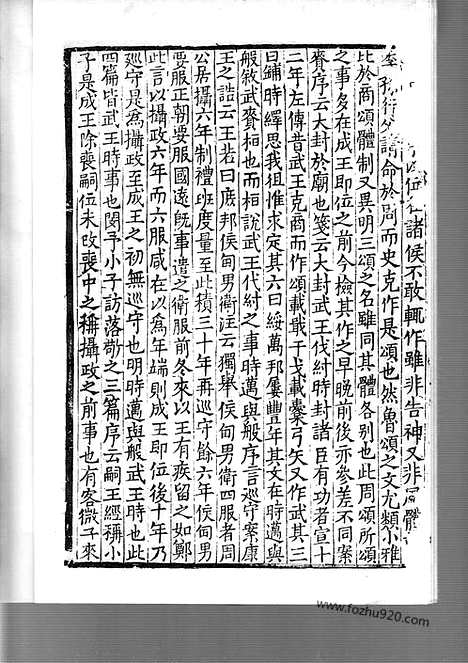 位在諸侯不敢輒作雖非告神又非風體
季孫行父請命於周而史克作是頌也然魯頌之文尤類小雅
比於商頌體制又異明三頌之名雖同其體各別也此周頌所頌
之事多在成王即位之前今檢其作之早晚前後亦參差不同案
賚序云大封於廟也箋云大封武王伐紂時封諸臣有功者宣十
二年左傳昔武王克商而作頌載戢干戈載櫜弓矢又作武其三
曰鋪時繹思我徂惟求定其六曰綏萬邦屢豐年其文在時邁與
般敘武賚桓也而桓說武王代紂之事時邁與般序言巡守案康
王之誥云王若曰庶邦侯甸男衛注云獨舉侯甸男衛四服者周
公居攝六年制禮班度量至此積三十年再巡守餘六年侯甸男
要服正朝要服國遠旣事遣之衛服前冬來以王有疾留之如鄭
此言以攝政六年而六服咸在以爲年端則成王即位後十年乃
巡守是爲攝政至成王之初無巡守也明時邁與般武王時也此
四篇皆武王時事也閔予小子訪落敬之三篇序云嗣王經稱小
子是成王除喪嗣位未改喪中之稱攝政之前事也有客微子來
www.fozhu920.com